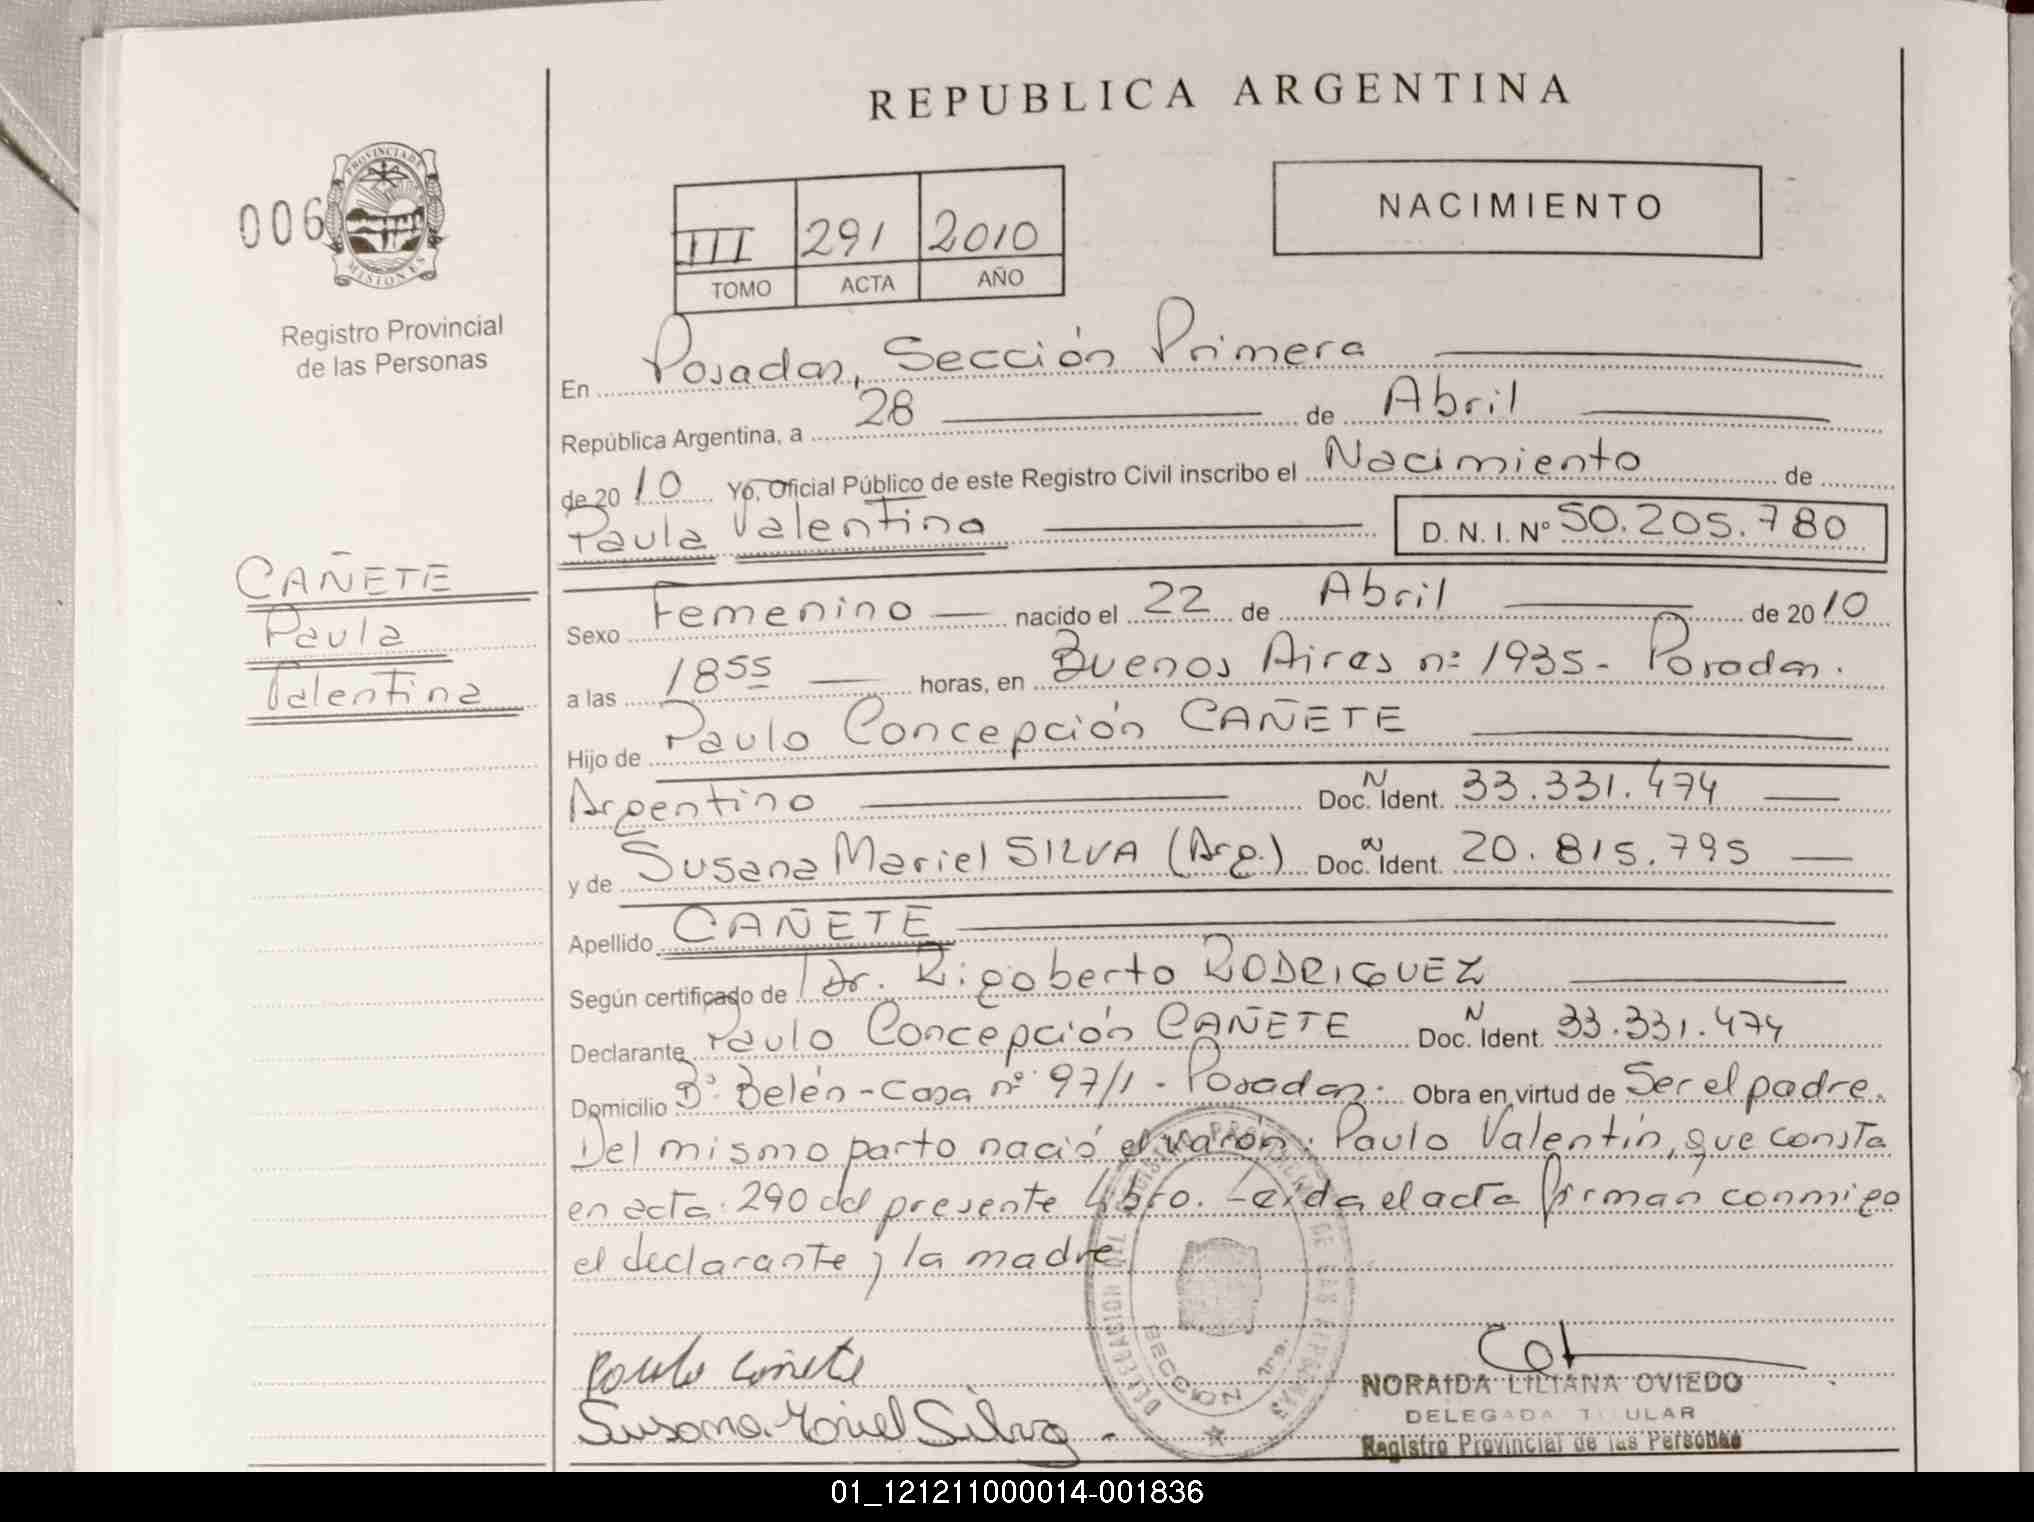 REPUBLICA ARGENTINA
006
PROVINCIA DE
MISIONES
Registro Provincial
de las Personas
III 291 2010
TOMO ACTA AÑO
NACIMIENTO
En Posadas, Sección Primera
República Argentina, a 28 de Abril
de 2010 Yo, Oficial Público de este Registro Civil inscribo el Nacimiento de
Paula Valentina D. N. I. Nº 50.205.780
CAÑETE
Paula
Valentina
Sexo Femenino nacido el 22 de Abril de 2010
a las 18 55 horas, en Buenos Aires nº 1935 - Posadas.
Hijo de Paulo Concepción CAÑETE
Argentino Doc. Ident. N 33.331.474
y de Susana Mariel SILVA (Arg.) Doc. Ident. N 20.815.795
Apellido CAÑETE
Según certificado de Dr. Rigoberto RODRIGUEZ
Declarante Paulo Concepción CAÑETE Doc. Ident. N 33.331.474
Domicilio Bº Belén - Casa nº 97/1 - Posadas. Obra en virtud de Ser el padre.
Del mismo parto nació el varón: Paulo Valentín, que consta
en acta 290 del presente libro. Leída el acta firman conmigo
el declarante y la madre
Paulo Cañete
Susana Mariel Silva
SECCION 1ra.
NORAIDA LILIANA OVIEDO
DELEGADA TITULAR
Registro Provincial de las Personas
01_121211000014-001836